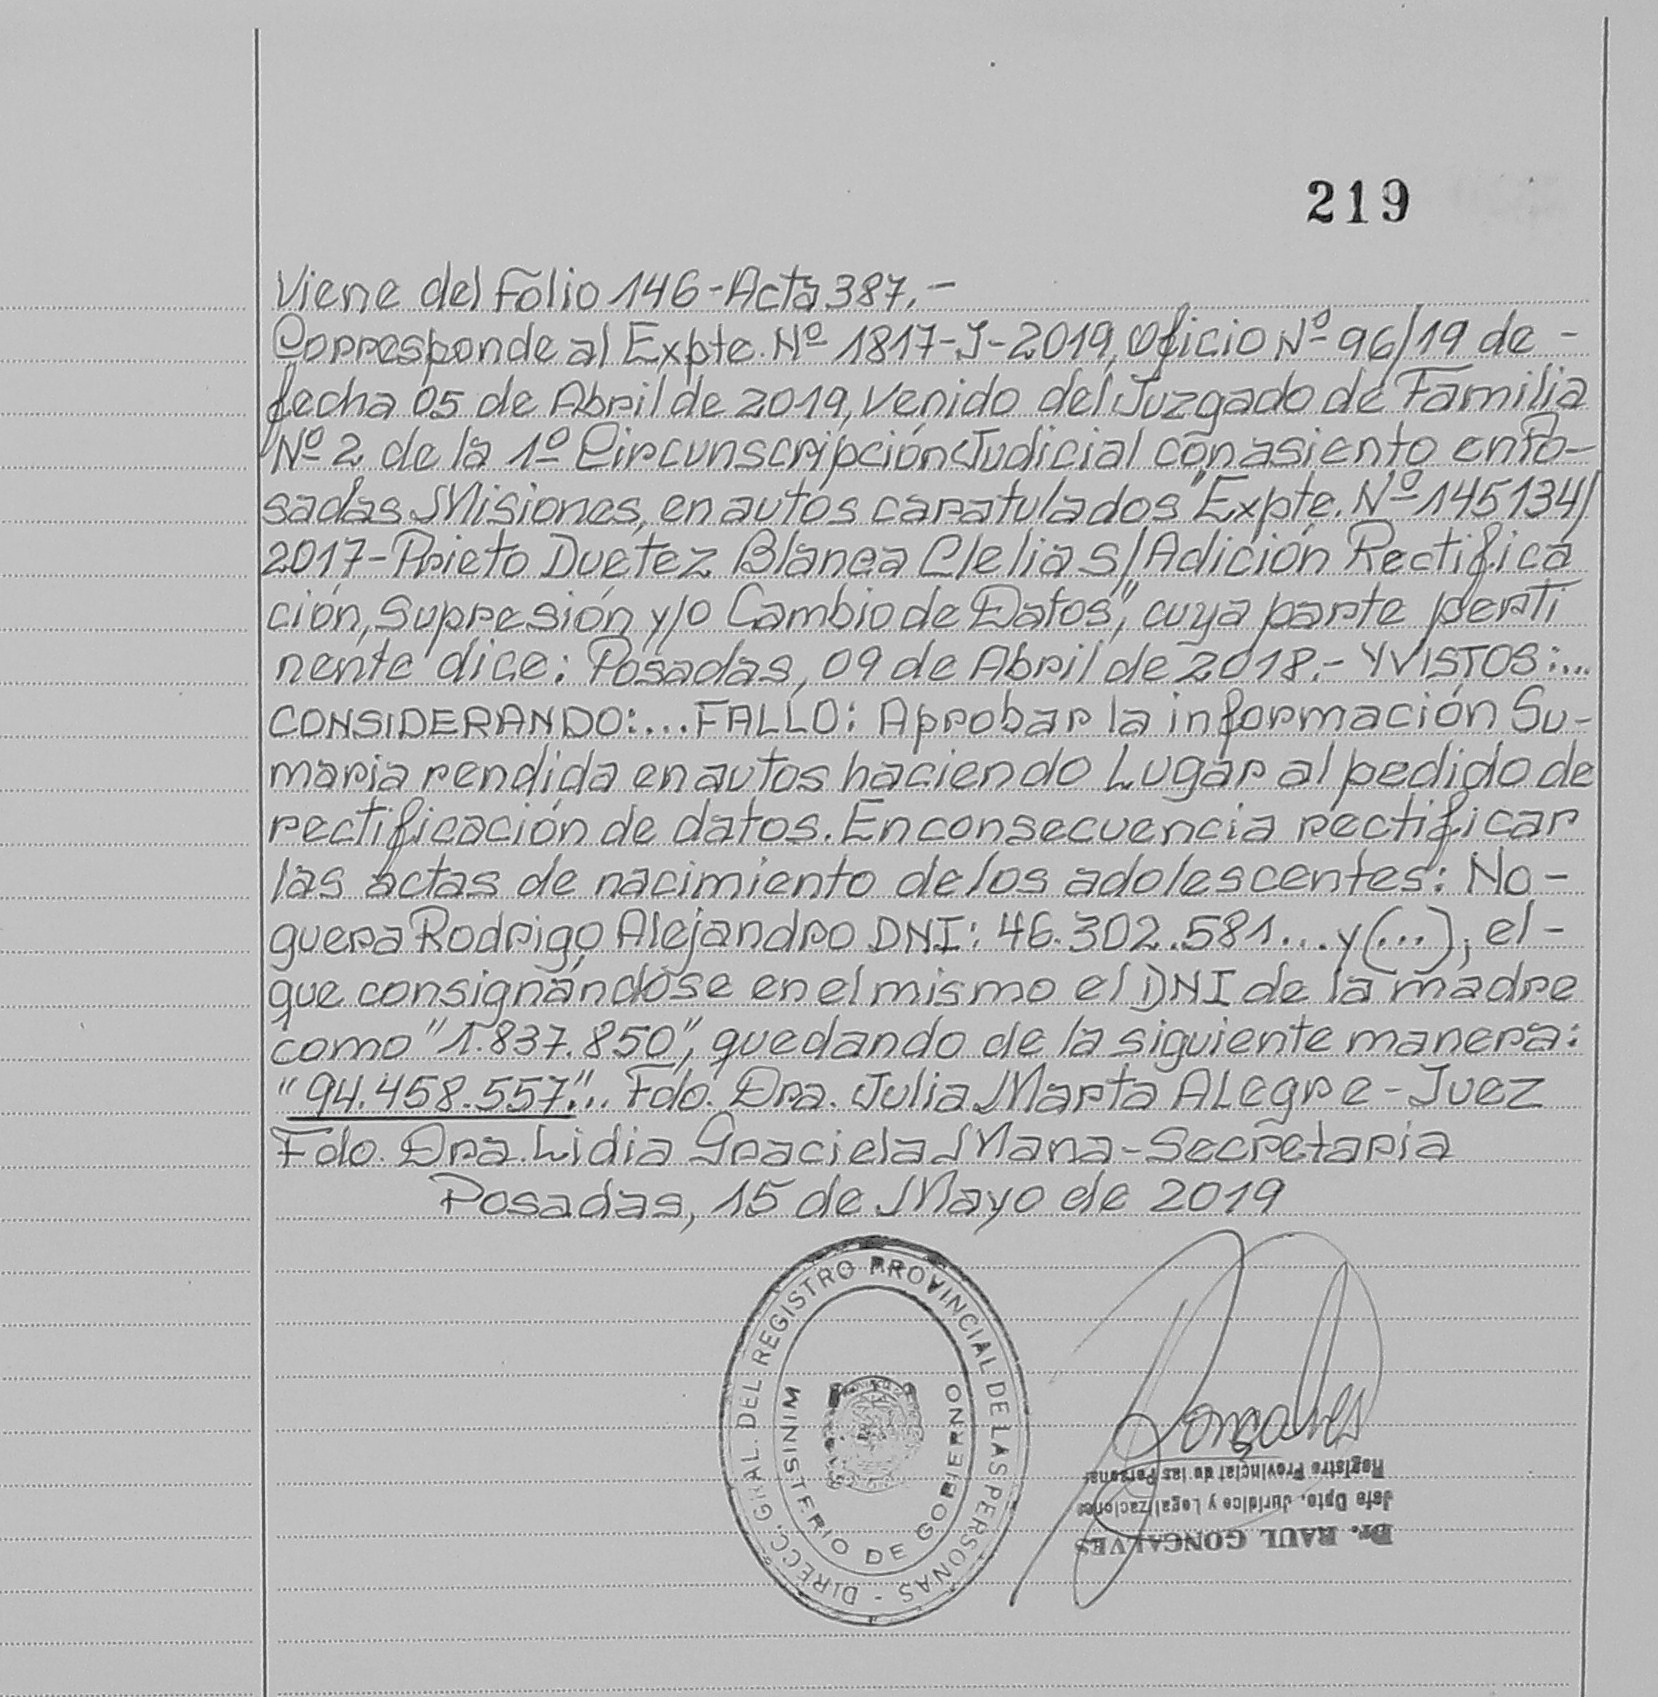 219
Viene del Folio 146-Acta 387.-
Corresponde al Expte. Nº 1817-J-2019, Oficio Nº 96/19 de -
fecha 05 de Abril de 2019, venido del Juzgado de Familia
Nº 2 de la 1º Circunscripción Judicial con asiento en Po-
sadas Misiones, en autos caratulados "Expte. Nº 145134/
2017-Prieto Duetez Blanca Clelia S/Adición Rectifica
ción, Supresión y/o Cambio de Datos", cuya parte perti
nente dice: Posadas, 09 de Abril de 2018.- Y VISTOS:...
CONSIDERANDO:...FALLO: Aprobar la información Su-
maria rendida en autos haciendo Lugar al pedido de
rectificación de datos. En consecuencia rectificar
las actas de nacimiento de los adolescentes: No-
guera Rodrigo Alejandro DNI: 46.302.581... y (...), el -
que consignándose en el mismo el DNI de la madre
como "1.837.850", quedando de la siguiente manera:
"94.458.557"... Fdo. Dra. Julia Marta Alegre - Juez
Fdo. Dra. Lidia Graciela Mana - Secretaria
Posadas, 15 de Mayo de 2019
DIRECC. GRAL. DEL REGISTRO PROVINCIAL DE LAS PERSONAS -
MINISTERIO DE GOBIERNO
Goncalves
Dr. RAUL GONCALVES
Jefe Dpto. Jurídico y Legalizaciones
Registro Provincial de las Personas